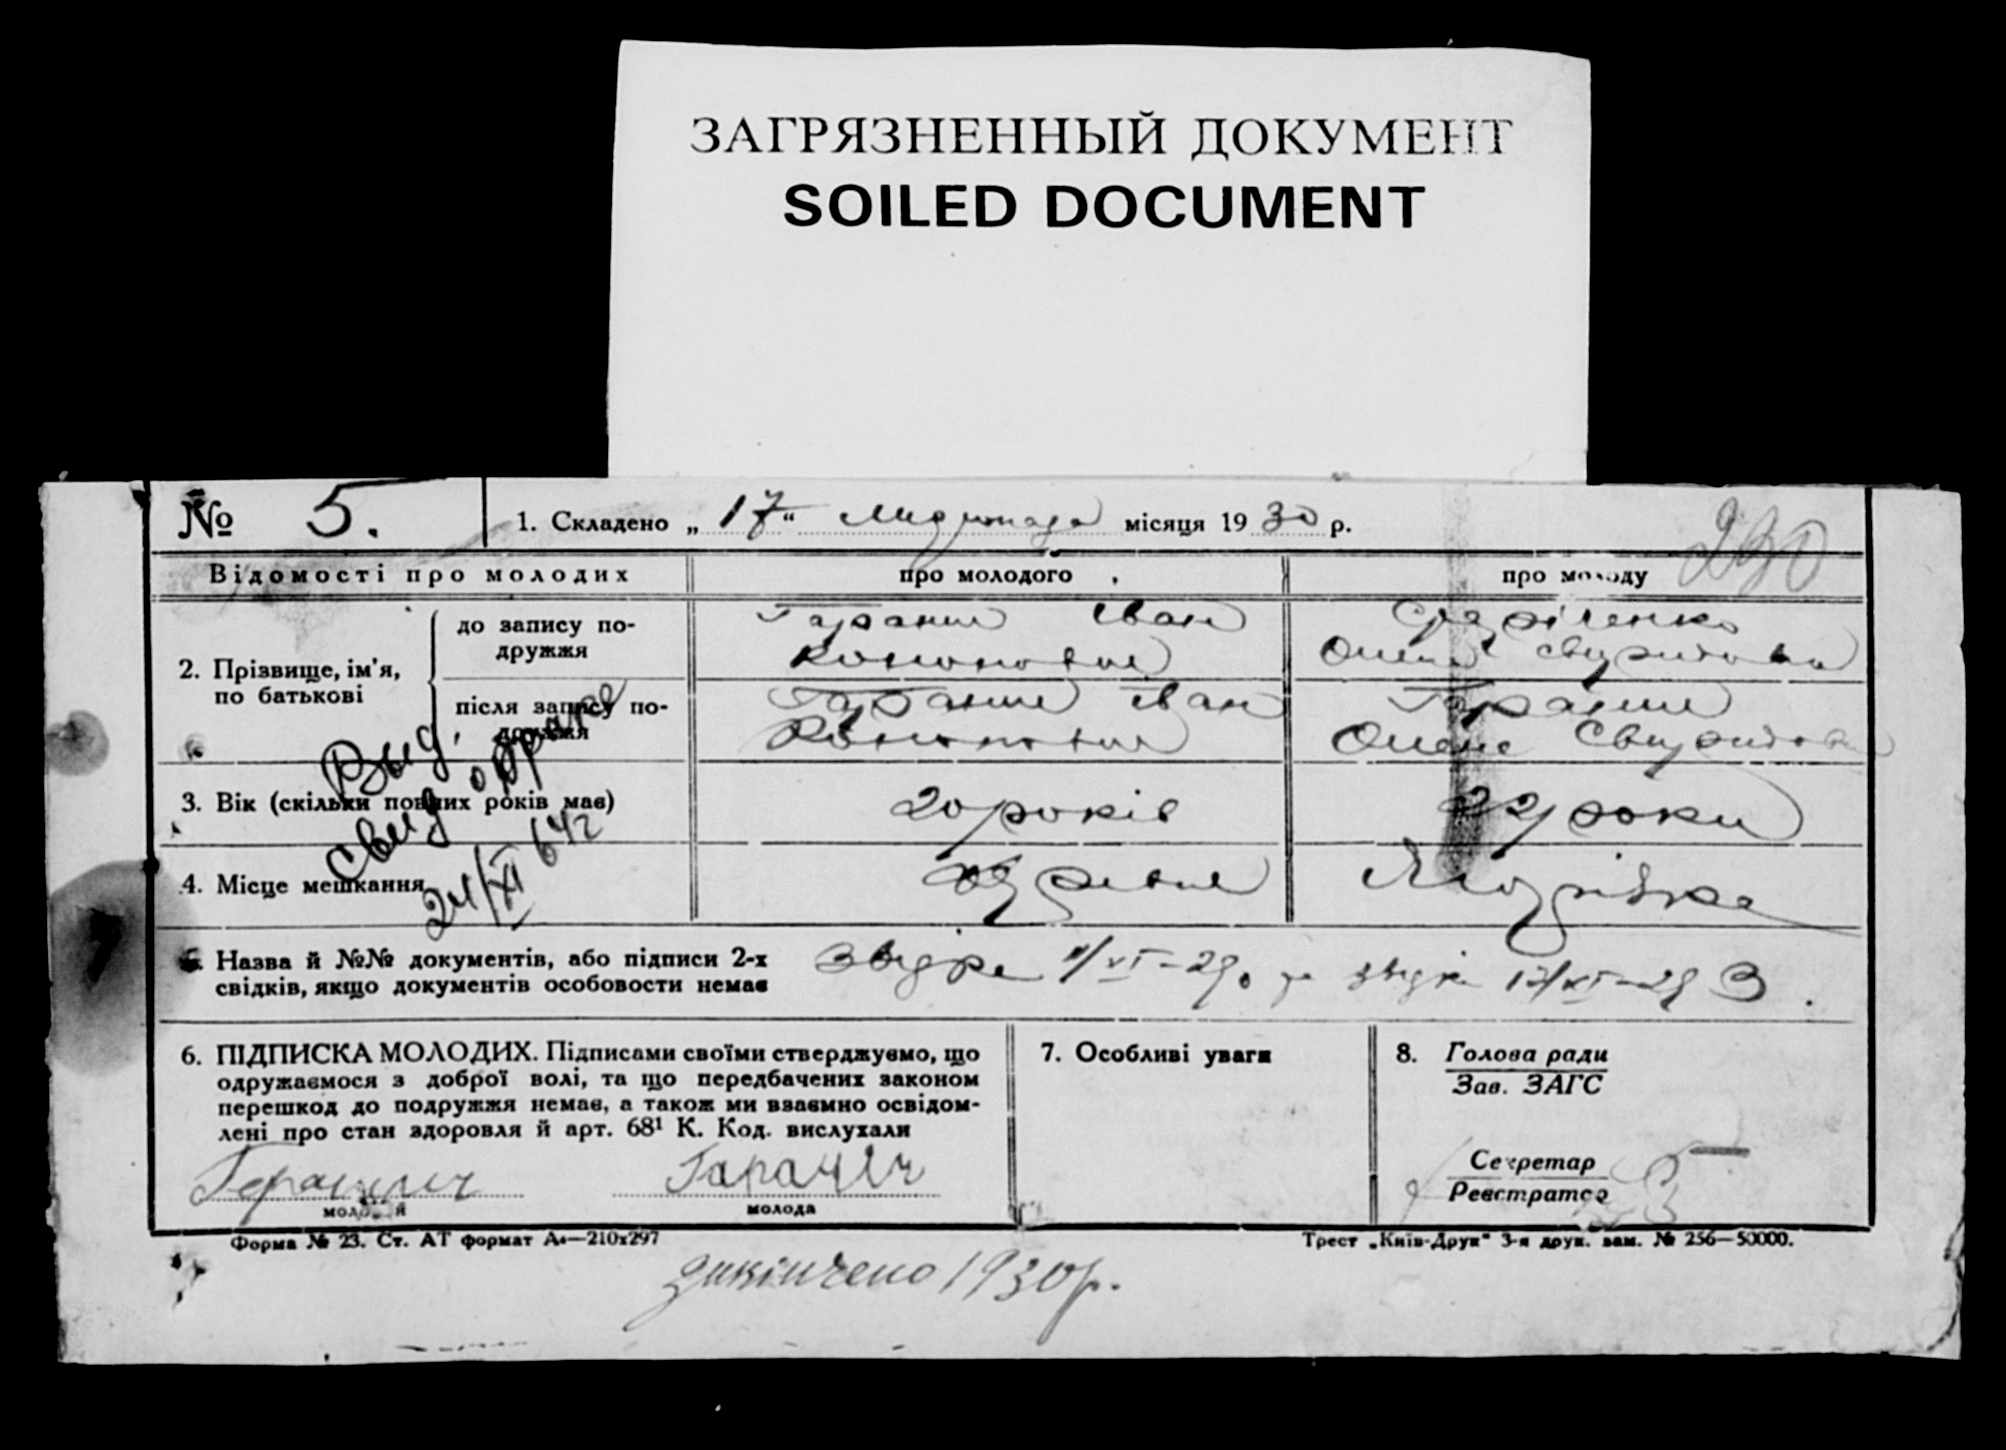 ЗАГРЯЗНЕННЫЙ ДОКУМЕНТ
SOILED DOCUMENT
№ 5. 1. Складено „17“ листопада місяця 1930 р.
230
Відомості про молодих про молодого про молоду
2. Прізвище, ім'я, по батькові
до запису подружжя
Гаранич Іван
Кононович
Олена Свиридовна
після запису подружжя
Гаранич Іван
Кононович
Гаранич
Олена Свиридовна
3. Вік (скільки повних років має) 20 років 22 роки
4. Місце мешкання
Выд. свид. о браке
24/XI 64 г
5. Назва й №№ документів, або підписи 2-х
свідків, якщо документів особовости немає
6. ПІДПИСКА МОЛОДИХ. Підписами своїми стверджуємо, що
одружаємося з доброї волі, та що передбачених законом
перешкод до подружжя немає, а також ми взаємно освідом-
лені про стан здоровля й арт. 68¹ К. Код. вислухали
Гаранич Гаранич
молодий молода
7. Особливі уваги
8. Голова ради
Зав. ЗАГС
Секретар
Реєстратор
Форма № 23. Ст. АТ формат А₄—210x297
Трест „Київ-Друк“ 3-я друк. зам. № 256—50000.
закінчено 1930 р.